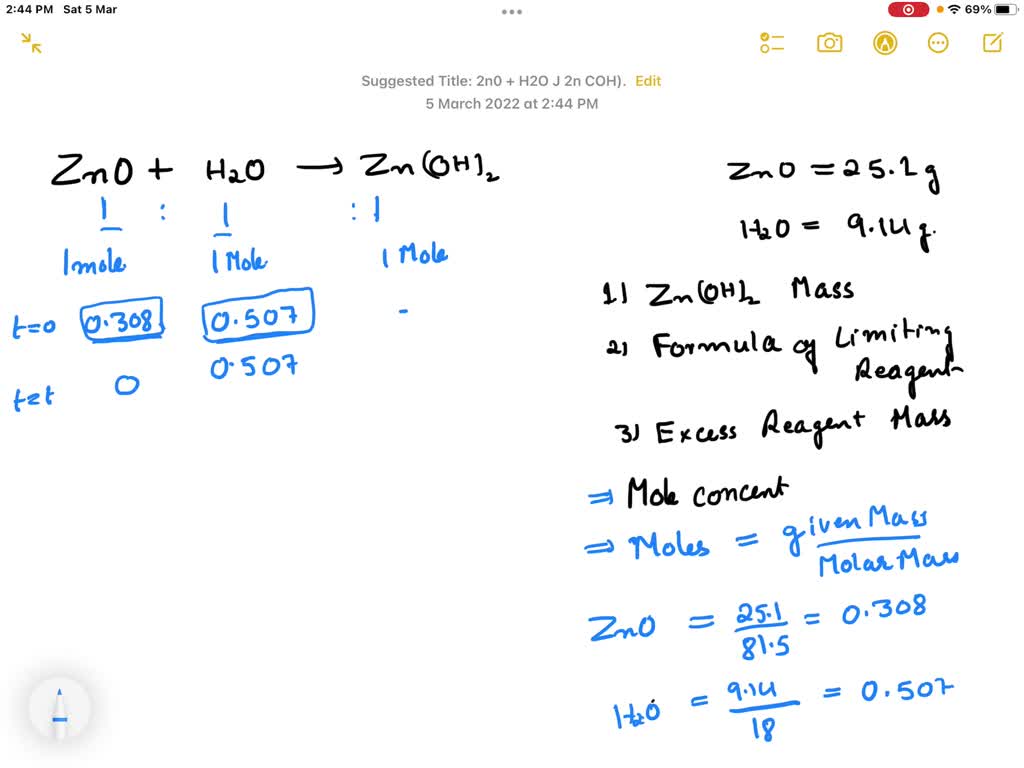 2:44 PM Sat 5 Mar
69%
Suggested Title: 2n0 + H2O J 2n COH). Edit
5 March 2022 at 2:44 PM
ZnO + H2O → Zn(OH)2
1 : 1 : 1
1 mole 1 Mole 1 Mole
t=0 0.308 0.507 -
0.507
t=t 0
ZnO = 25.1 g
H2O = 9.14 g.
1) Zn(OH)2 Mass
2) Formula of Limiting Reagent
3) Excess Reagent Mass
⇒ Mole concent
⇒ Moles = given Mass / Molar Mass
ZnO = 25.1 / 81.5 = 0.308
H2O = 9.14 / 18 = 0.507